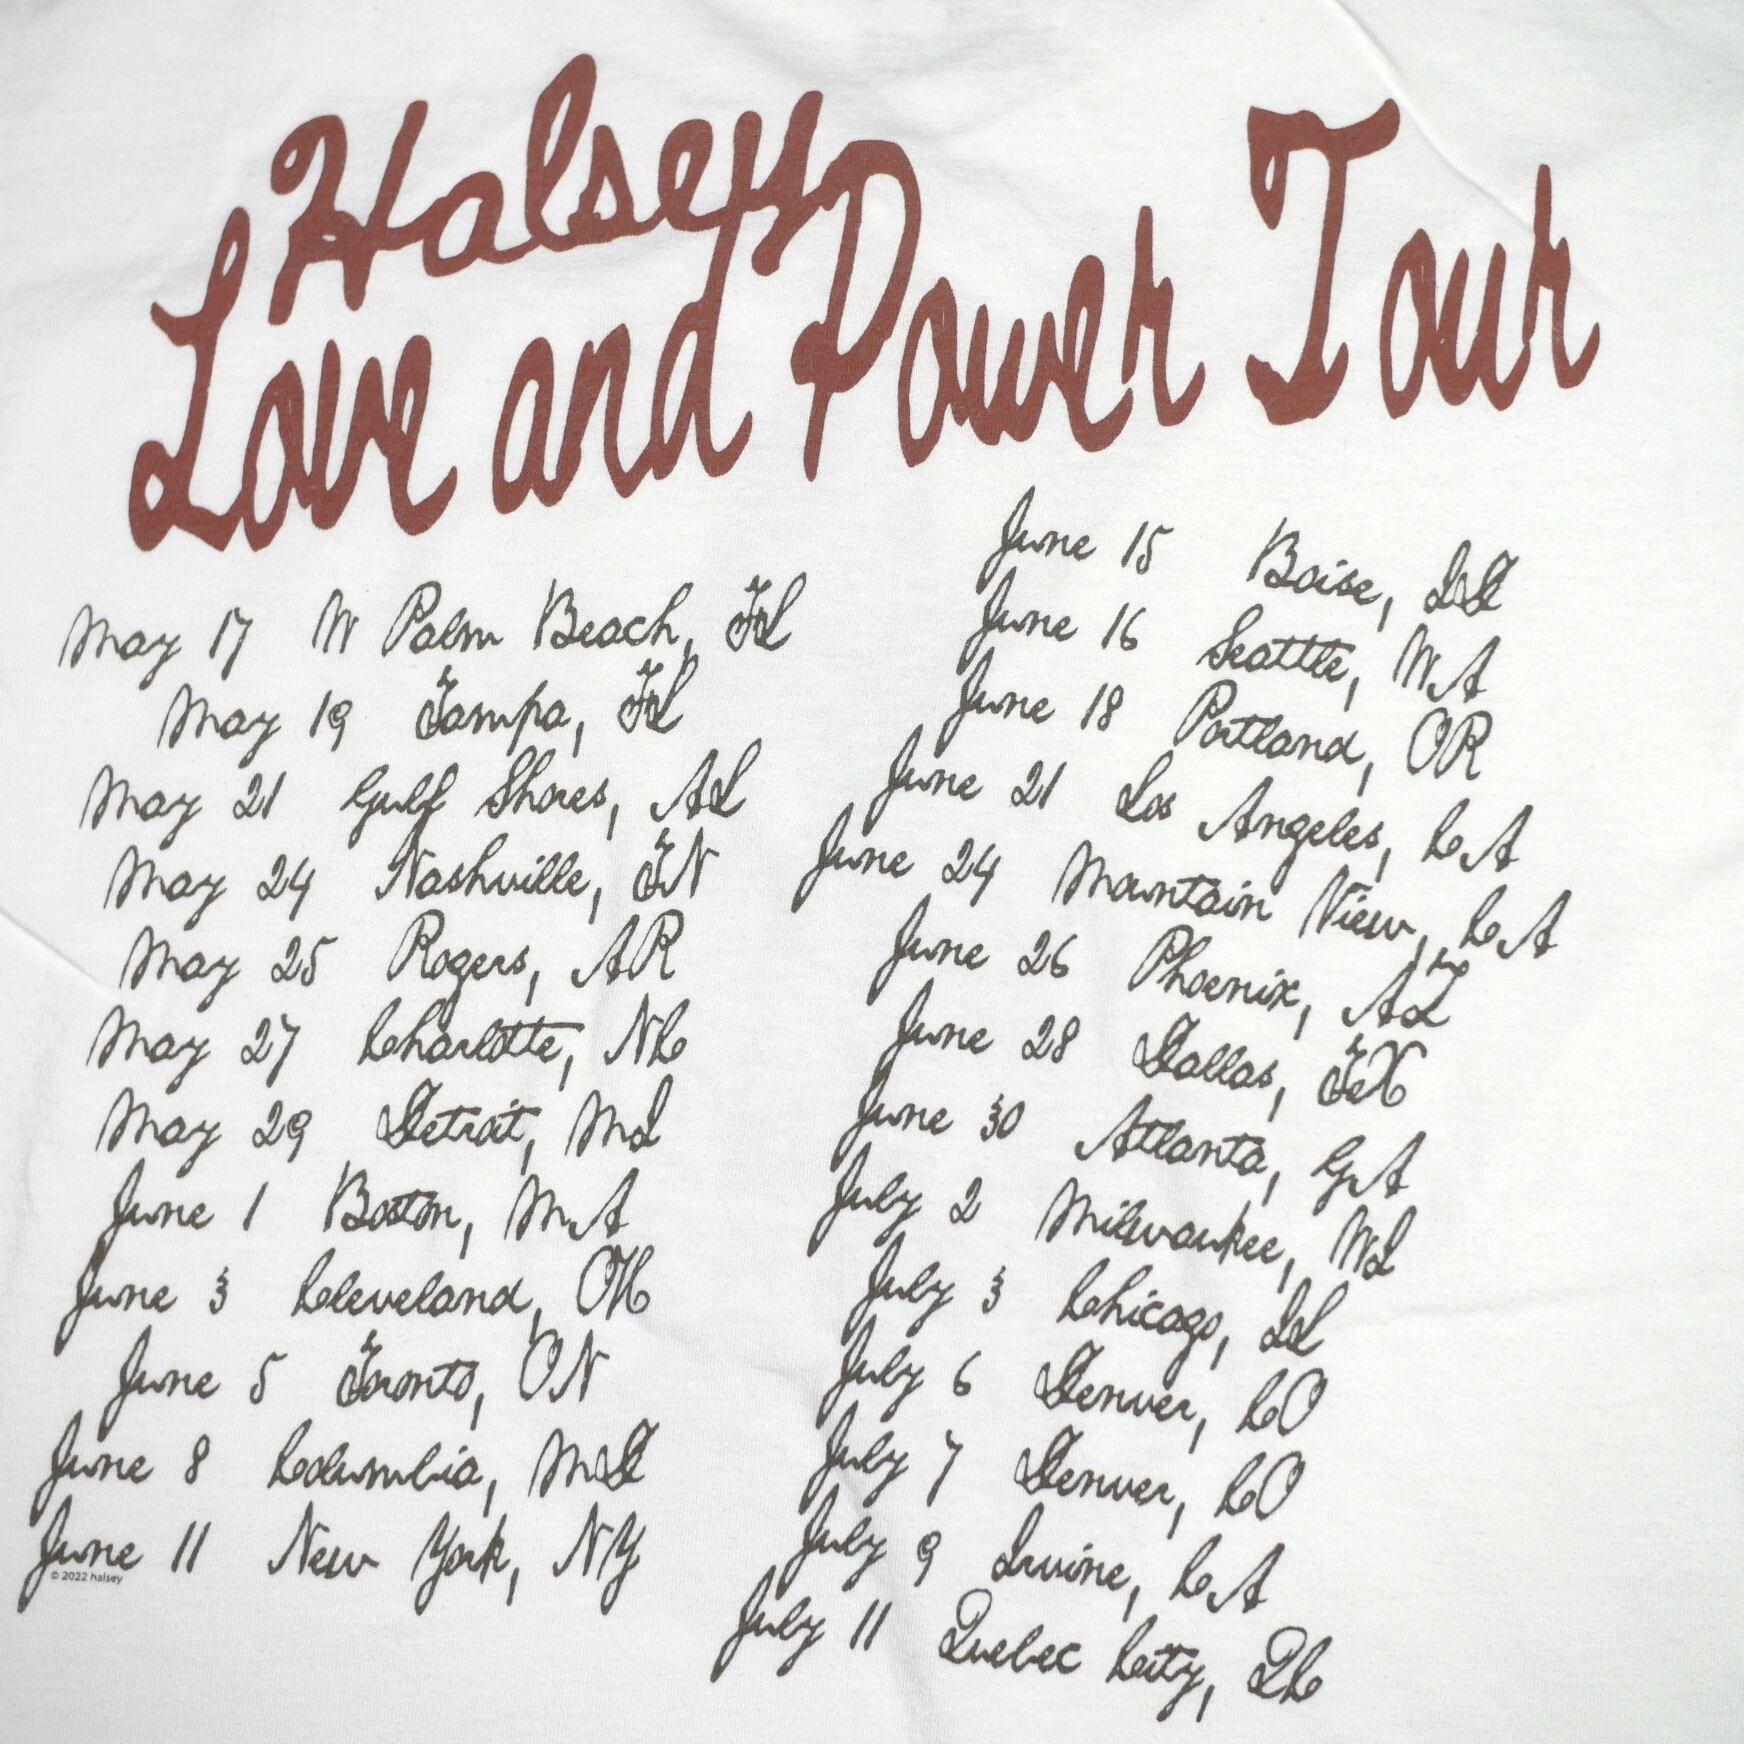 Halsey
Love and Power Tour
May 17 W Palm Beach, FL
May 19 Tampa, FL
May 21 Gulf Shores, AL
May 24 Nashville, TN
May 25 Rogers, AR
May 27 Charlotte, NC
May 29 Detroit, MI
June 1 Boston, MA
June 3 Cleveland, OH
June 5 Toronto, ON
June 8 Columbia, MD
June 11 New York, NY
© 2022 halsey
June 15 Boise, ID
June 16 Seattle, WA
June 18 Portland, OR
June 21 Los Angeles, CA
June 24 Mountain View, CA
June 26 Phoenix, AZ
June 28 Dallas, TX
June 30 Atlanta, GA
July 2 Milwaukee, WI
July 3 Chicago, IL
July 6 Denver, CO
July 7 Denver, CO
July 9 Irvine, CA
July 11 Quebec City, QC